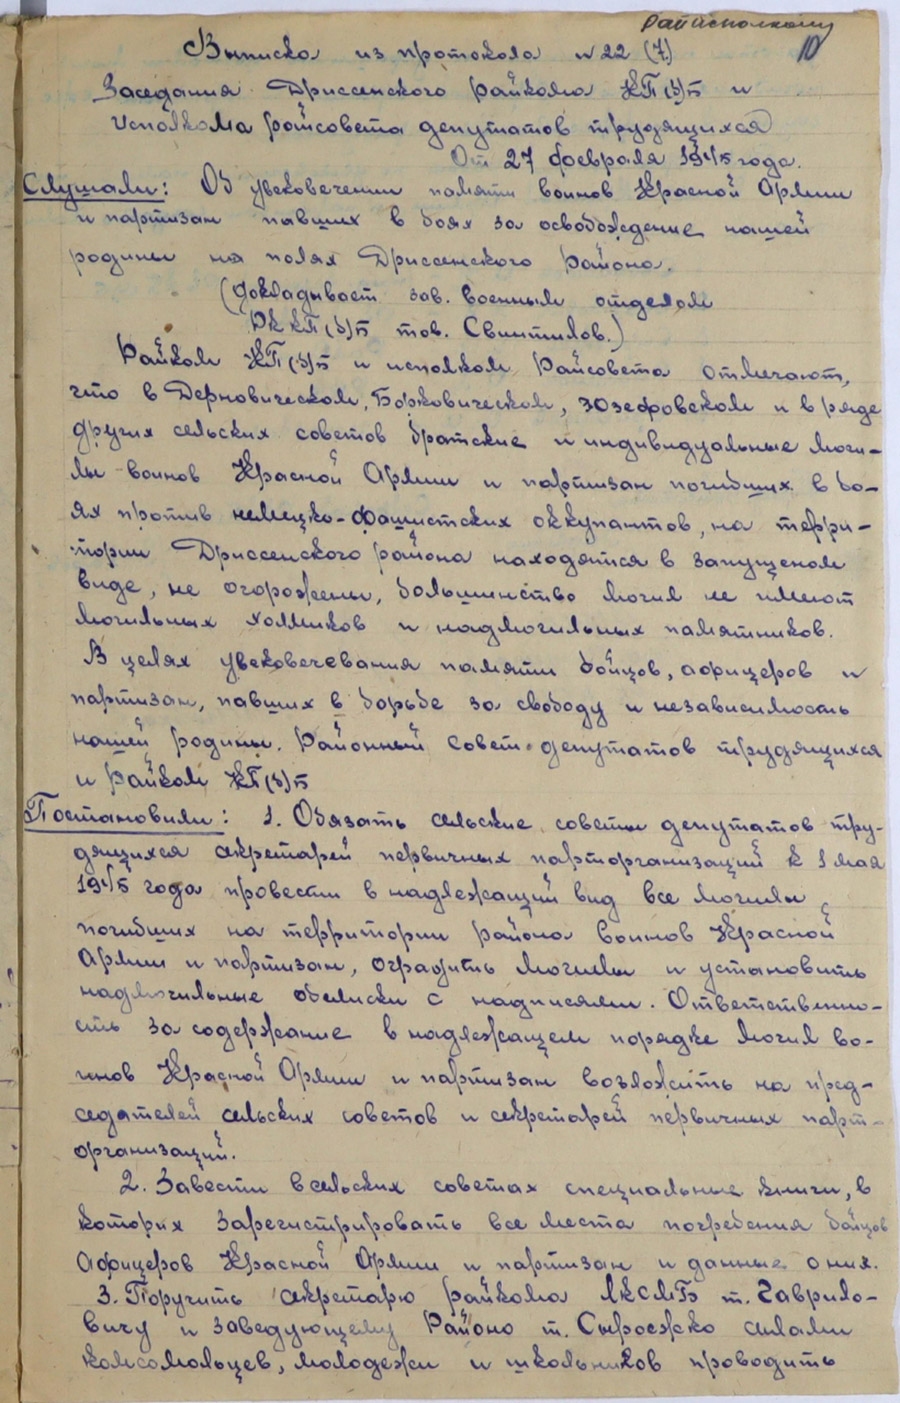 Райисполкому
10
Выписка из протокола №22 (7)
Заседания Дриссенского райкома КП(б)Б и
исполкома райсовета депутатов трудящихся
От 27 февраля 1945 года.
Слушали: Об увековечении памяти воинов Красной Армии
и партизан павших в боях за освобождение нашей
родины на полях Дриссенского района.
(докладывает зав. военным отделом
РККП(б)Б тов. Свинтилов.)
Райком КП(б)Б и исполком Райсовета отмечают,
что в Дерновическом, Борковическом, Юзефовском и в ряде
других сельских советов братские и индивидуальные моги-
лы воинов Красной Армии и партизан погибших в бо-
ях против немецко-фашистских оккупантов, на терри-
тории Дриссенского района находятся в запущеном
виде, не огорожены, большинство могил не имеют
могильных холмиков и надмогильных памятников.
В целях увековечевания памяти бойцов, афицеров и
партизан, павших в борьбе за свободу и независимость
нашей родины. Районный совет депутатов трудящихся
и Райком КП(б)Б
Постановили: 1. Обязать сельские советы депутатов тру-
дящихся секретарей первичных парторганизаций к 1 мая
1945 года провести в надлежащий вид все могилы
погибших на территории района воинов Красной
Армии и партизан, оградить могилы и установить
надмогильные обелиски с надписями. Ответственно-
сть за содержание в надлежащем порядке могил во-
инов Красной Армии и партизан возложить на пред-
седателей сельских советов и секретарей первичных парт-
организаций.
2. Завести в сельских советах специальные книги, в
которих зарегистрировать все места погребения бойцов
афицеров Красной Армии и партизан и данные о них.
3. Поручить секретарю райкома ЛКСМБ т. Гаврило-
вичу и заведующему Районо т. Сыроежко силами
комсомольцев, молодежи и школьников проводить